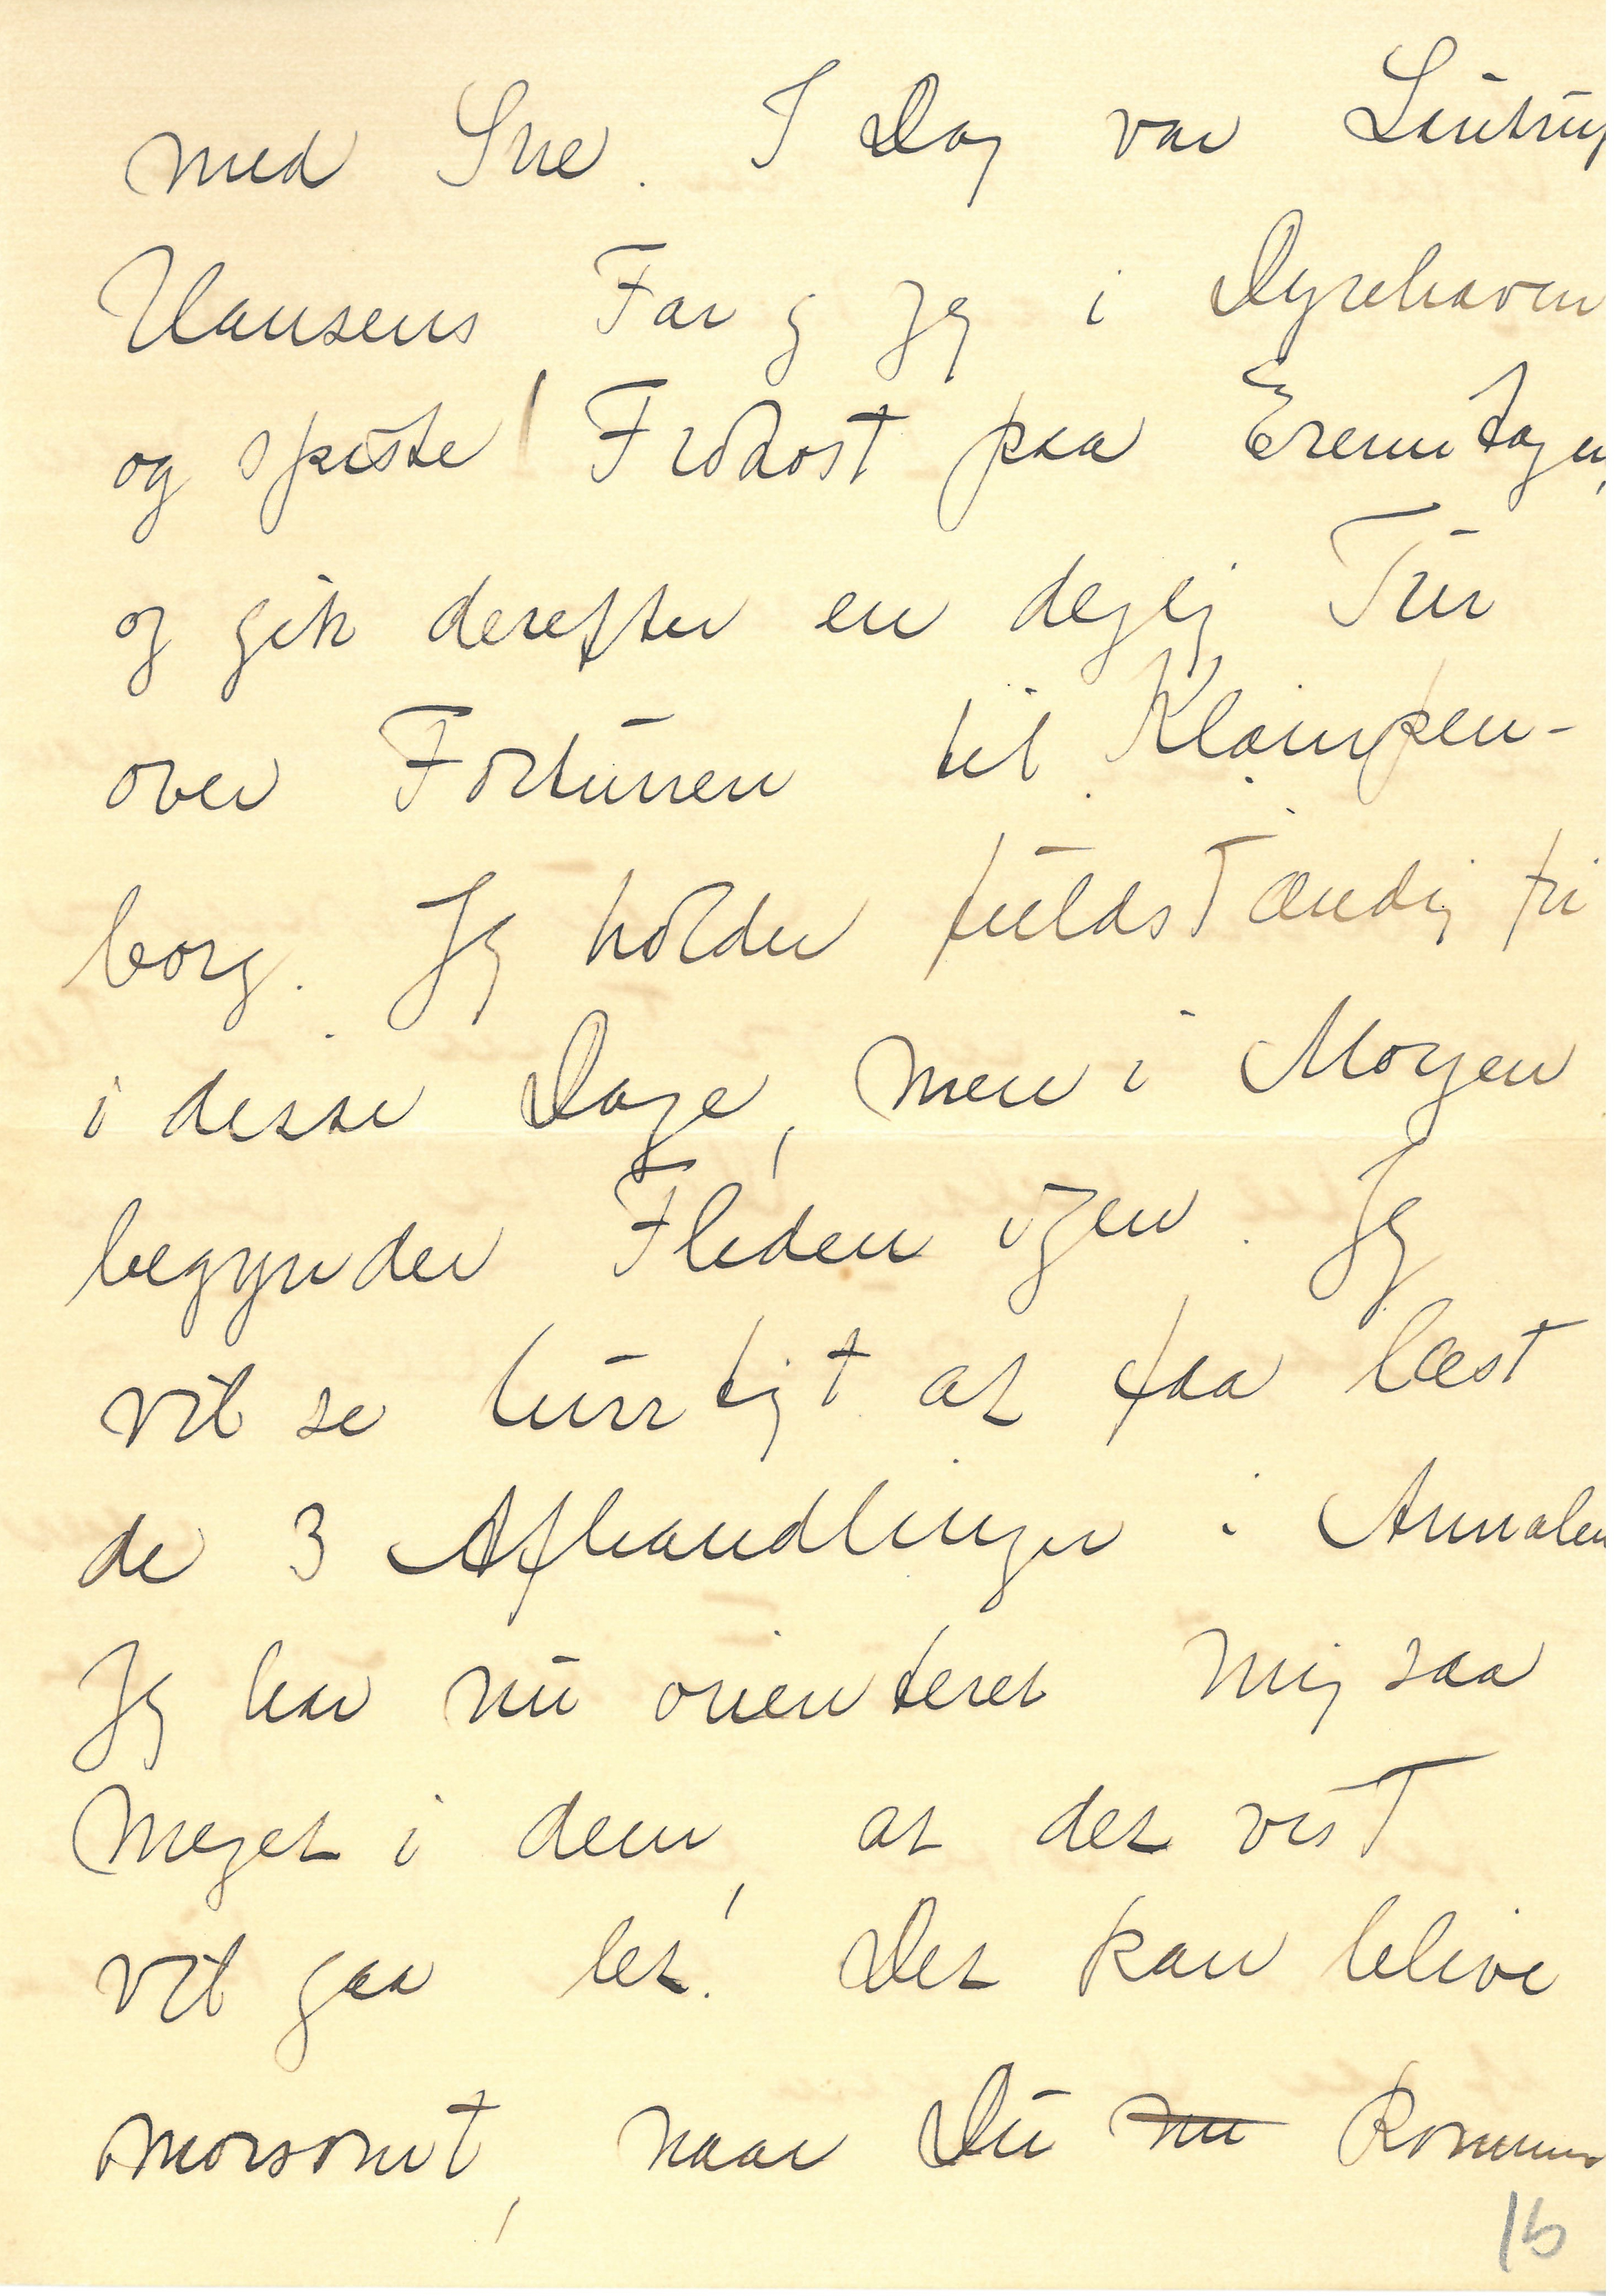 med Sne. I Dag var Lintrup
Hansens Far og jeg i Dyrehaven
og spiste Frokost paa Eremitagen,
og gik derefter en dejlig Tur
over Fortunen til Klampen-
borg. Jeg holder fuldstændig fri
i disse Dage, men i Morgen
begynder Fliden igen. Jeg
vil se hurtigt at faa læst
de 3 Afhandlinger i Annalen
Jeg har nu orienteret mig saa
meget i dem, at det vist
vil gaa let. Det kan blive
morsomt, naar Du nu kommer
16